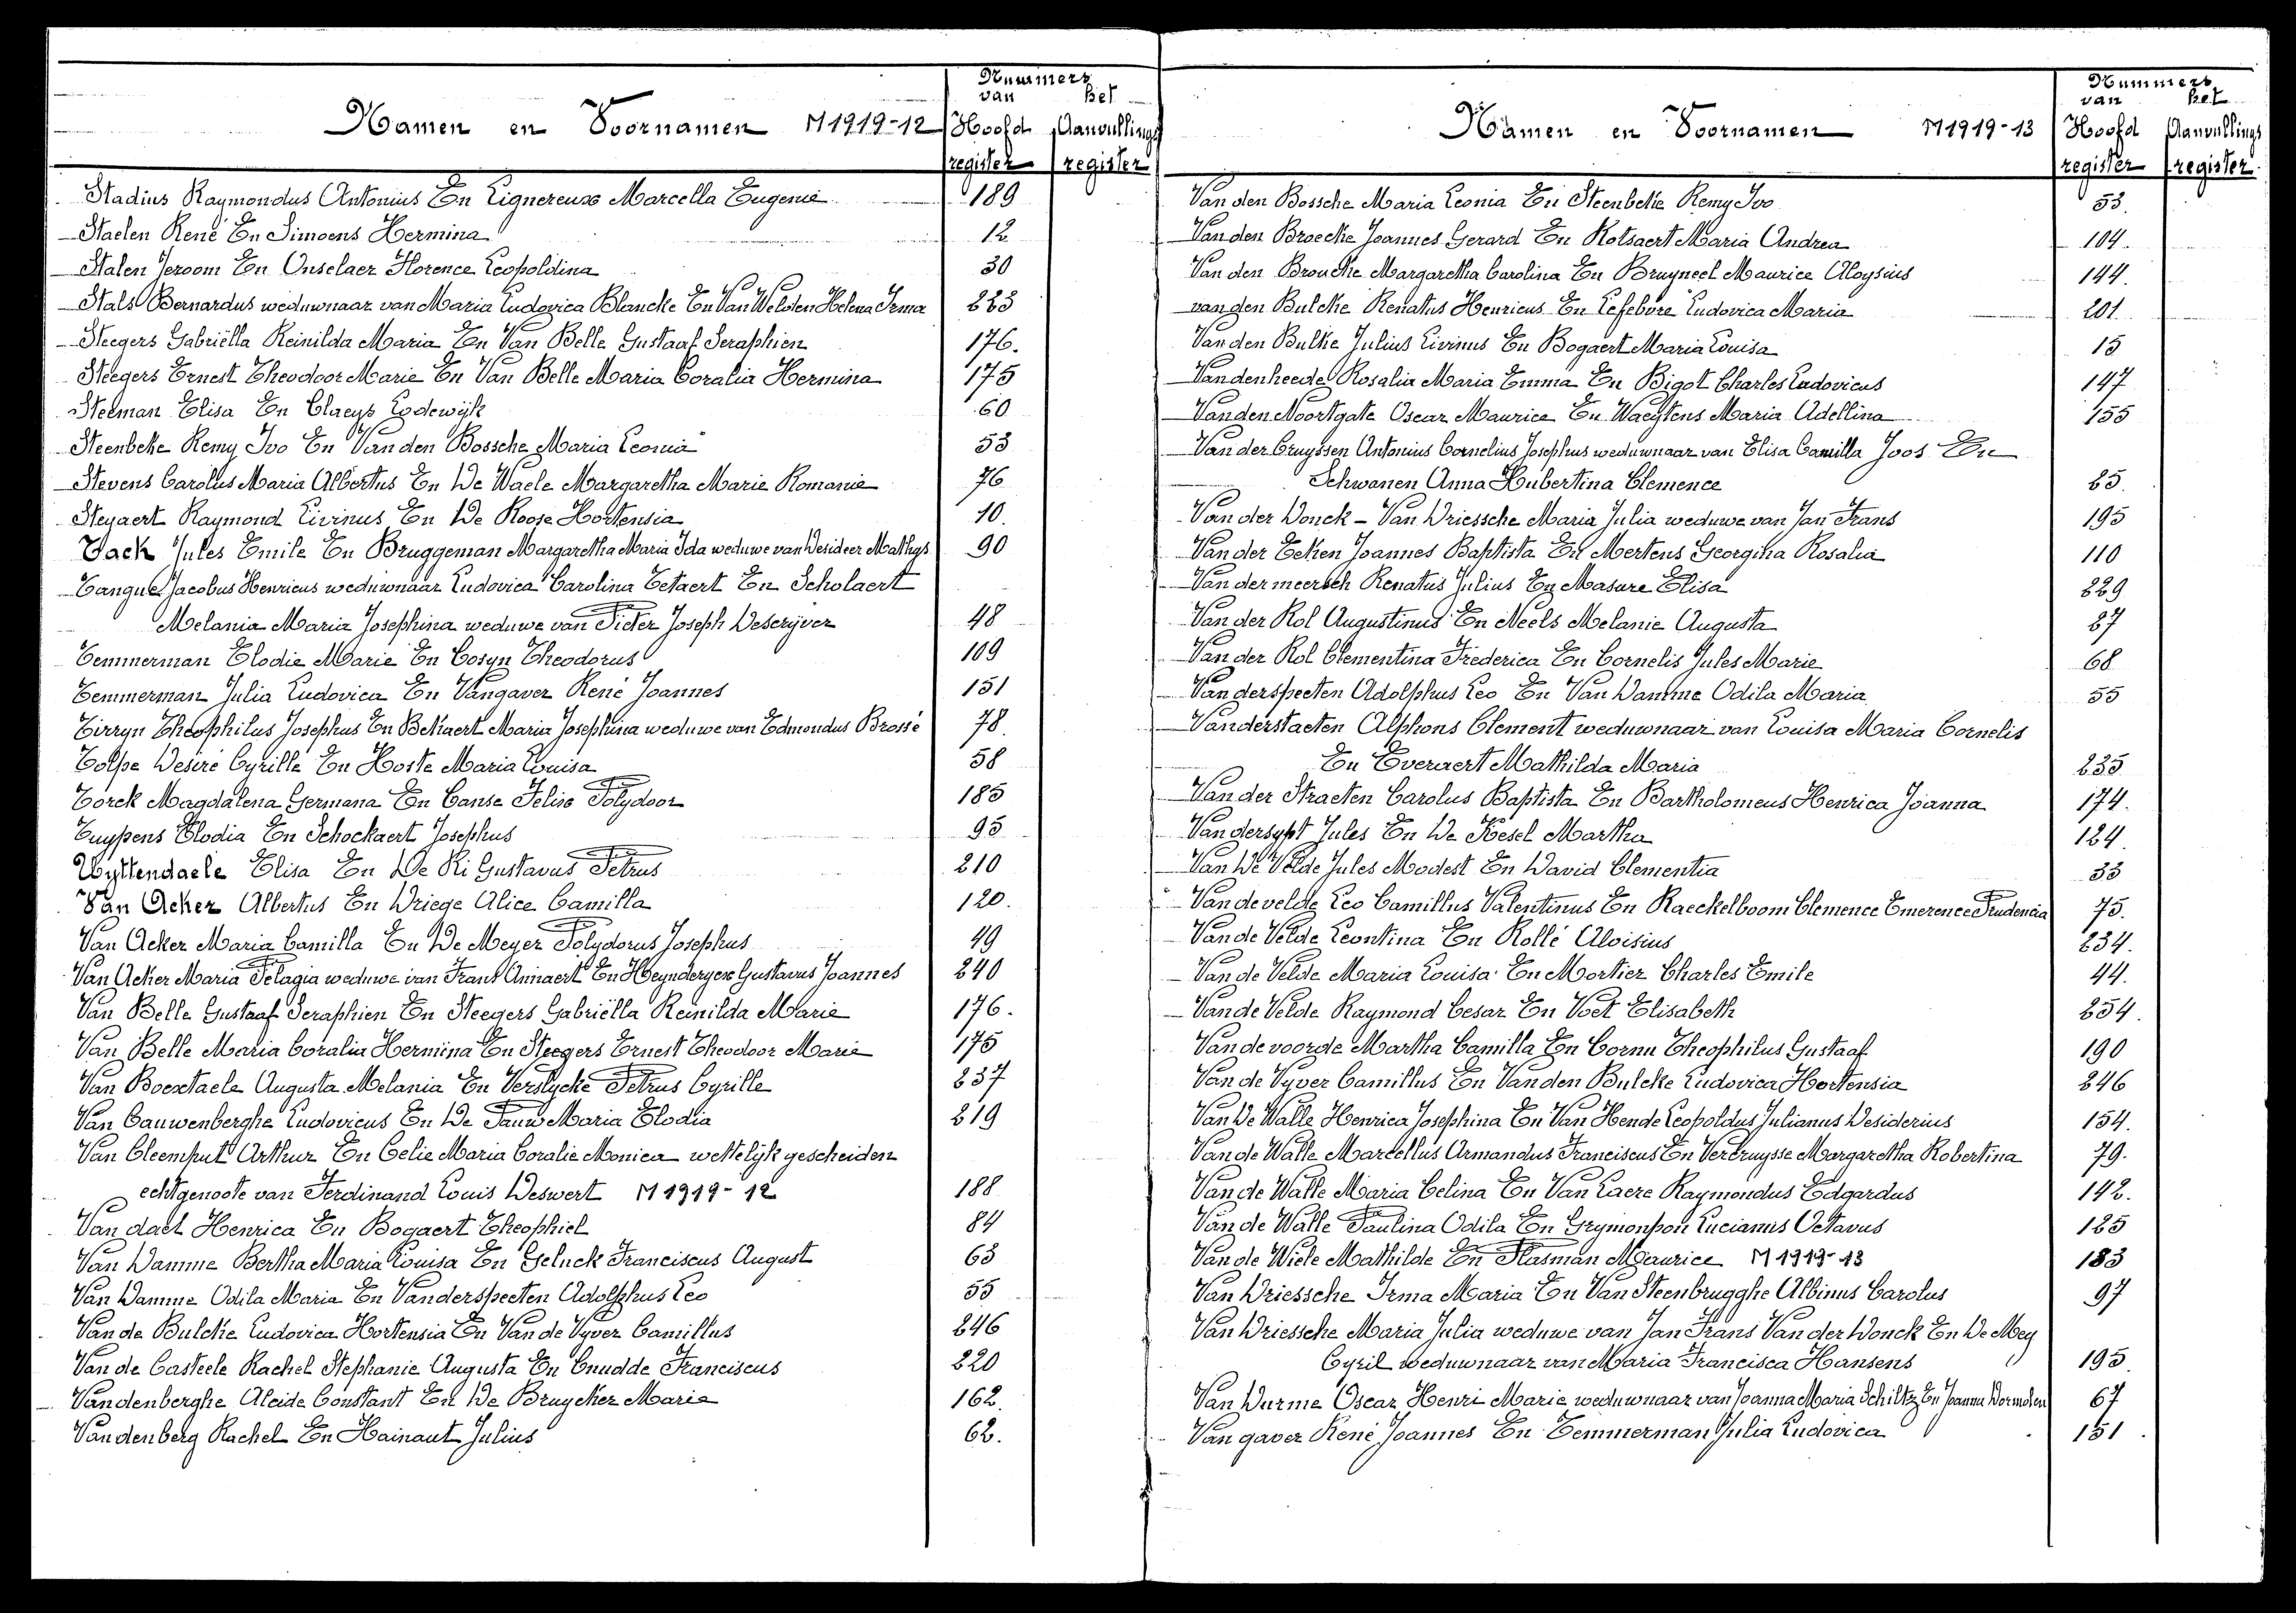 Nummers
van het
Namen en Voornamen M1919-12 Hoofd Aanvullings
register register
Stadius Raymondus Antonius En Lignereuse Marcella Eugenie 189
Staelen René En Simoens Hermina 12
Stalen Jeroom En Onselaer Florence Leopoldina 30
Stals Bernardus weduwnaar van Maria Ludovica Blancke En Van Welden Helena Irma 223
Steegers Gabriëlla Reinilda Maria En Van Belle Gustaaf Seraphien 176.
Steegers Ernest Theodoor Marie En Van Belle Maria Coralia Hermina 175
Steeman Elisa En Claeys Lodewijk 60
Steenbeke Remy Ivo En Van den Bossche Maria Leonia 53
Stevens Carolus Maria Albertus En De Waele Margaretha Marie Romanie 76
Steyaert Raymond Livinus En De Roose Hortensia 10.
Tack Jules Emile En Bruggeman Margaretha Maria Ida weduwe van Desideer Mathys 90
Tangue Jacobus Henricus weduwnaar Ludovica Carolina Tetaert En Scholaert
Melania Maria Josephina weduwe van Pieter Joseph Descrijver 48
Temmerman Elodie Marie En Cosyn Theodorus 109
Temmerman Julia Ludovica En Vangaver René Joannes 151
Tirryn Theophilus Josephus En Bekaert Maria Josephina weduwe van Edmondus Brossé 78.
Tolpe Desiré Cyrille En Hoste Maria Louisa 58
Torck Magdalena Germana En Canse Felise Polydoor 185
Tuypens Elodia En Schockaert Josephus 95
Uyttendaele Elisa En De Ri Gustavus Petrus 210
Van Acker Albertus En Driege Alice Camilla 120.
Van Acker Maria Camilla En De Meyer Polydorus Josephus 49
Van Acker Maria Pelagia weduwe van Frans Annaert En Heynderyckx Gustavus Joannes 240
Van Belle Gustaaf Seraphien En Steegers Gabriëlla Reinilda Marie 176.
Van Belle Maria Coralia Hermina En Steegers Ernest Theodoor Marie 175
Van Boextaele Augusta Melania En Verslycke Petrus Cyrille 237
Van Cauwenberghe Ludovicus En De Pauw Maria Elodia 219
Van Cleemput Arthur En Celie Maria Coralie Monica wettelijk gescheiden
echtgenoote van Ferdinand Louis Deswert M1919-12 188
Van dael Henrica En Bogaert Theophiel 84
Van Damme Bertha Maria Louisa En Geluck Franciscus August 63
Van Damme Odila Maria En Vanderspeeten Adolphus Leo 55
Van de Bulcke Ludovica Hortensia En Van de Vyver Camillus 246
Van de Casteele Rachel Stephanie Augusta En Cnudde Franciscus 220
Vandenberghe Aleide Constant En De Bruycker Marie 162.
Vandenberg Rachel En Hainaut Julius 62.
Nummers
van het
Namen en Voornamen M1919-13 Hoofd Aanvullings
register register
Van den Bossche Maria Leonia En Steenbeke Remy Ivo 53.
Van den Broecke Joannes Gerard En Rotsaert Maria Andrea 104.
Van den Broucke Margaretha Carolina En Bruyneel Maurice Aloysius 144.
van den Bulcke Renatus Henricus En Lefebvre Ludovica Maria 201
Van den Bulke Julius Livinus En Bogaert Maria Louisa 15
Vandenheede Rosalia Maria Emma En Bigot Charles Ludovicus 147
Van den Noortgate Oscar Maurice En Waeytens Maria Adellina 155
Van der Cruyssen Antonius Cornelius Josephus weduwnaar van Elisa Camilla Joos En
Schwanen Anna Hubertina Clemence 25.
Van der Donck - Van Driessche Maria Julia weduwe van Jan Frans 195
Van der Eeken Joannes Baptista En Mertens Georgina Rosalia 110
Van der meersch Renatus Julius En Masure Elisa 229
Van der Rol Augustinus En Neels Melanie Augusta 27
Van der Rol Clementina Frederica En Cornelis Jules Marie 68
Van derspeeten Adolphus Leo En Van Damme Odila Maria 55
Vanderstaeten Alphons Clement weduwnaar van Louisa Maria Cornelis
En Everaert Mathilda Maria 235
Van der Straeten Carolus Baptista En Bartholomeus Henrica Joanna 174.
Van dersypt Jules En De Kesel Martha 124.
Van De Velde Jules Modest En David Clementia 33
Van de velde Leo Camillus Valentinus En Raeckelboom Clemence Emerence Prudencia 75.
Van de Velde Leontina En Rollé Aloisius 234.
Van de Velde Maria Louisa En Mortier Charles Emile 44.
Van de Velde Raymond Cesar En Voet Elisabeth 254.
Van de voorde Martha Camilla En Cornu Theophilus Gustaaf 190
Van de Vyver Camillus En Van den Bulcke Ludovica Hortensia 246
Van De Walle Henrica Josephina En Van Hende Leopoldus Julianus Desiderius 154.
Van de Walle Marcellus Armandus Franciscus En Vercruysse Margaretha Robertina 79.
Van de Walle Maria Celina En Van Laere Raymondus Edgardus 142.
Van de Walle Paulina Odila En Grymonpon Lucianus Octavus 125
Van de Wiele Mathilde En Plasman Maurice M1919-13 183
Van Driessche Irma Maria En Van Steenbrugghe Albinus Carolus 97
Van Driessche Maria Julia weduwe van Jan Frans Van der Donck En De Mey
Cyril weduwnaar van Maria Francisca Hansens 195
Van Durme Oscar Henri Marie weduwnaar van Joanna Maria Schiltz En Joanna 67
Van gaver René Joannes En Temmerman Julia Ludovica 151